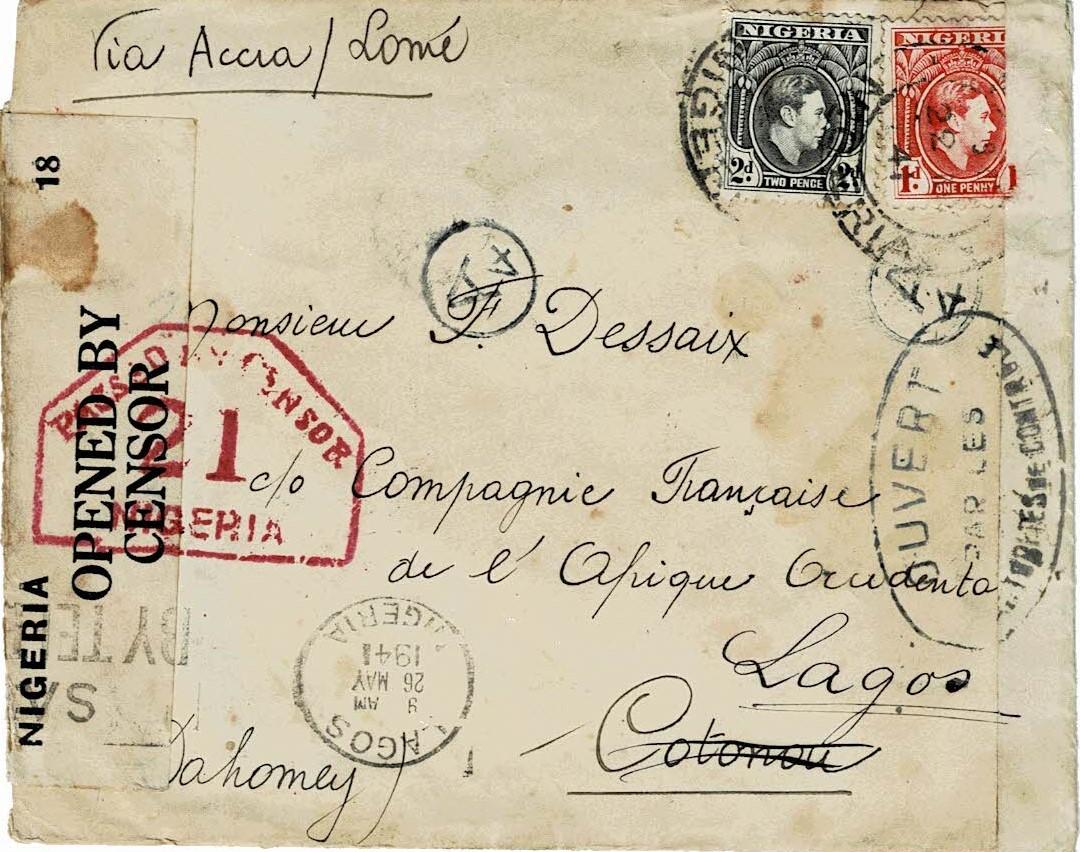 Via Accra / Lomé
NIGERIA
2d TWO PENCE 2d
NIGERI
1d ONE PENNY 1
Monsieur F. Dessaix
c/o Compagnie Française
de l'Afrique Occidenta
Lagos
Cotonou
Dahomey)
18
OPENED BY
CENSOR
NIGERIA
PASSED BY CENSOR
21
NIGERIA
LAGOS
9 AM
26 MAY
1941
NIGERIA
OUVERT
PAR LES
DE CONTR
BY TE
SA